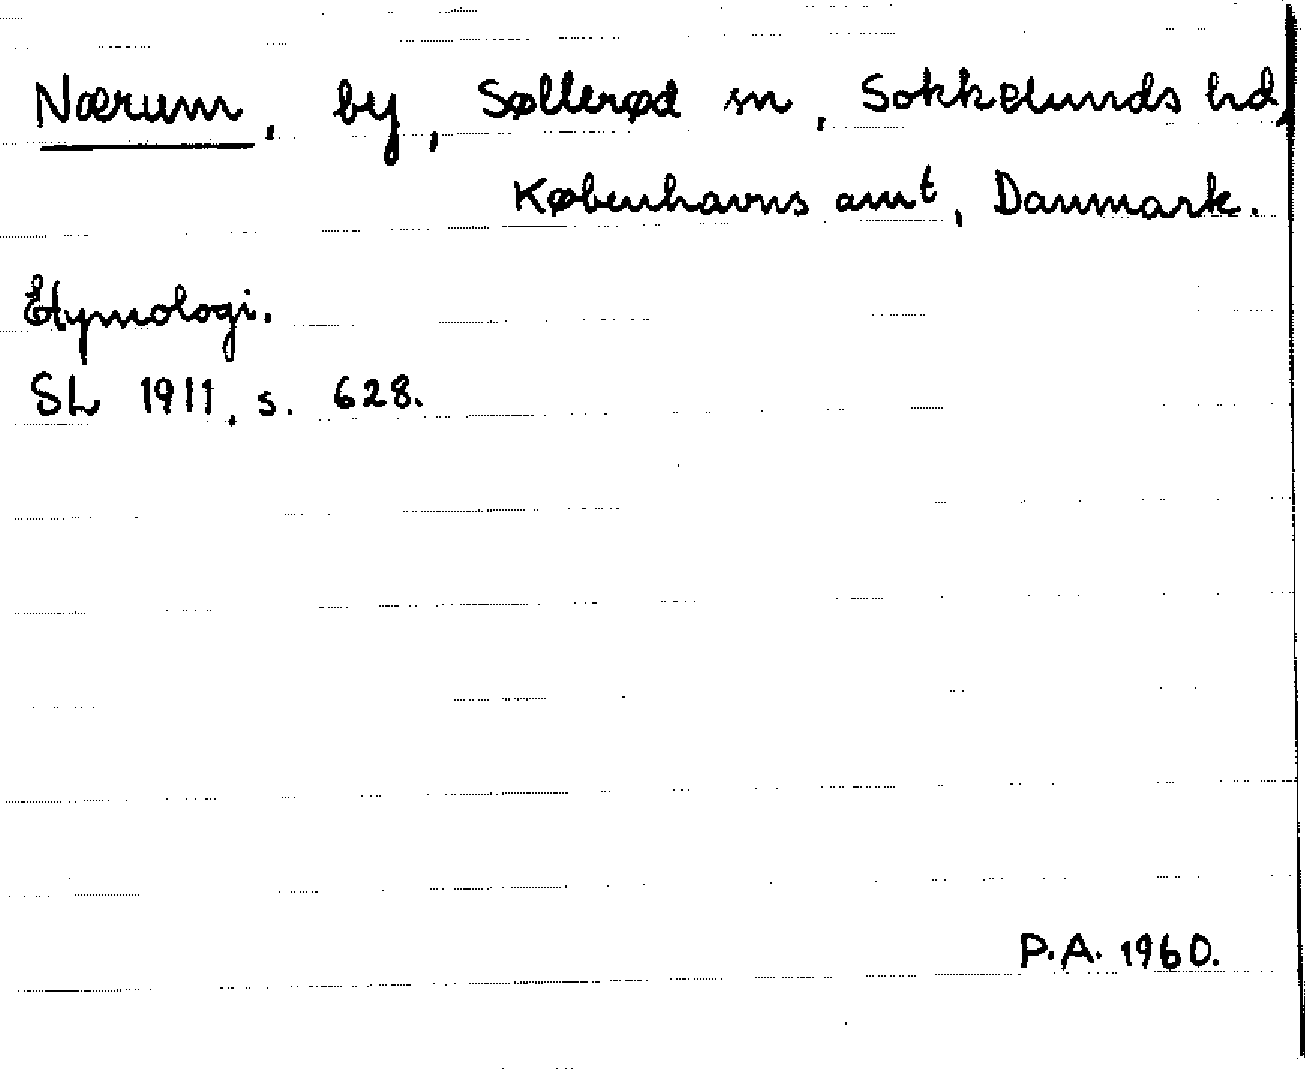 Nærum, by, Søllerød sn, Sokkelunds hd,
Københavns amt, Danmark.
Etymologi.
SL 1911, s. 628.
P.A. 1960.